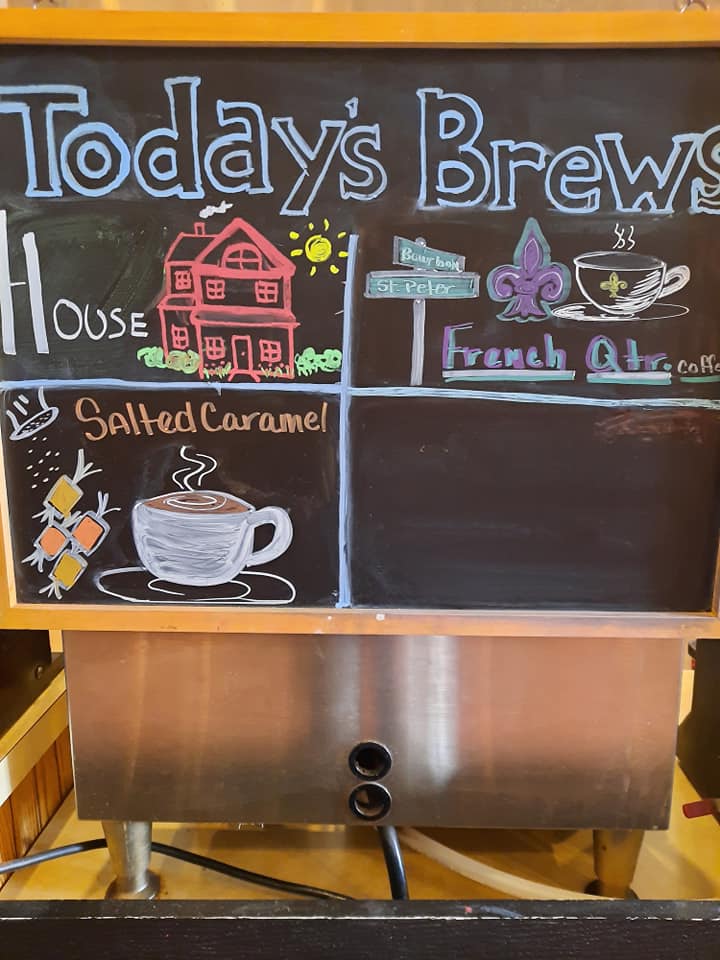 Today's Brews
HOUSE
Bourbon
St. Peter
French Qtr. Coffe
Salted Caramel